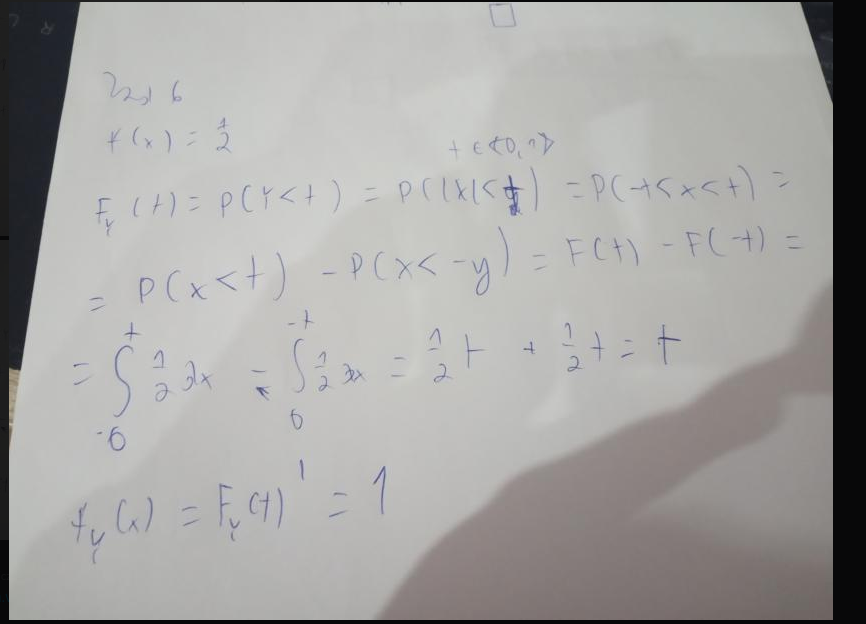 Zad 6
f(x) = 1/2
t ∈ <0,1>
F_Y(t) = P(Y<t) = P(|X|<t) = P(-t<x<t) =
= P(x<t) - P(x<-y) = F(t) - F(-t) =
= ∫_{-0}^{t} 1/2 dx - ∫_{0}^{-t} 1/2 dx = 1/2 t + 1/2 t = t
f_Y(x) = F_Y(t)' = 1